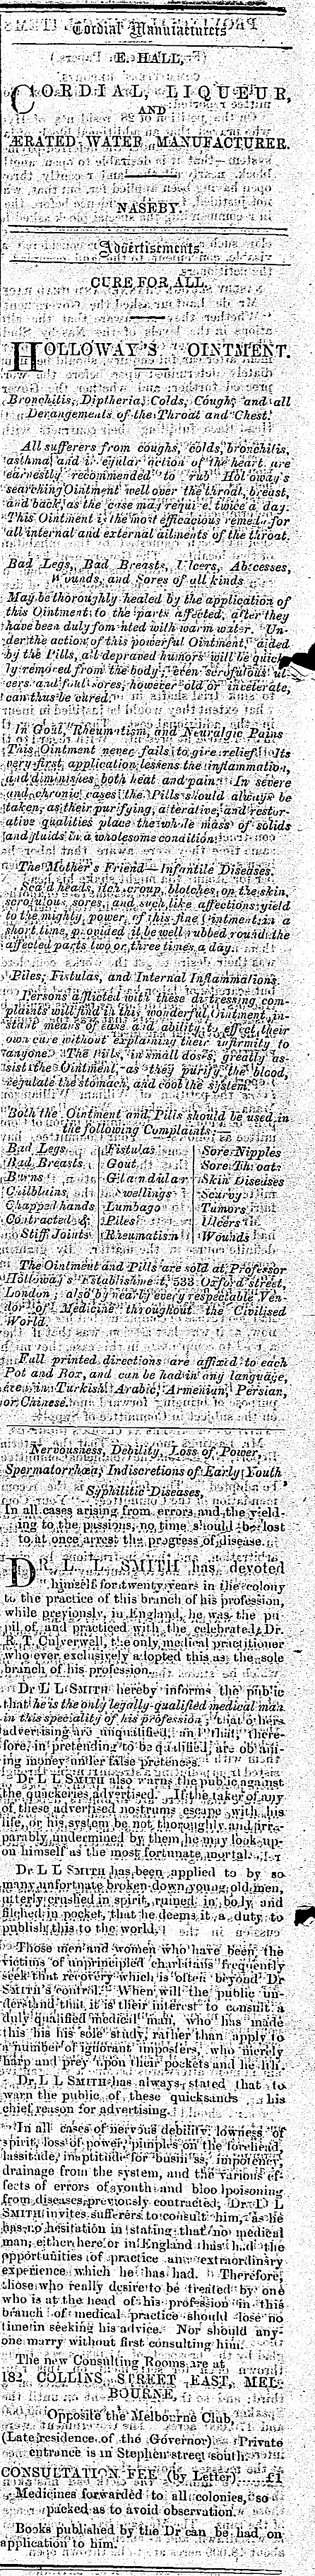 Cordial Manufacturers
E. HALL,
CORDIAL, LIQUEUR,
AND
ÆRATED WATER MANUFACTURER.
NASEBY.
Advertisements.
CURE FOR ALL.
HOLLOWAY'S OINTMENT.
Bronchitis, Diptheria, Colds, Coughs and all
Derangements of the Throat and Chest.
All sufferers from coughs, colds, bronchitis,
asthma, and irregular action of the heart are
earnestly recommended to rub Holloway's
searching Ointment well over the throat, breast,
and back, as the case may require, twice a day.
This Ointment is the most efficacious remedy for
all internal and external ailments of the throat.
Bad Legs, Bad Breasts, Ulcers, Abscesses,
Wounds, and Sores of all kinds
May be thoroughly healed by the application of
this Ointment to the parts affected, after they
have been duly fomented with warm water. Un-
der the action of this powerful Ointment, aided
by the Pills, all depraved humors will be quick
ly removed from the body; even scrofulous ul
cers and foul sores, however old or inveterate,
can thus be cured.
In Gout, Rheumatism, and Neuralgic Pains
This Ointment never fails to give relief. Its
very first application lessens the inflammation,
and diminishes both heat and pain. In severe
and chronic cases the Pills should always be
taken, as their purifying, alterative, and restor-
ative qualities place the whole mass of solids
and fluids in a wholesome condition.
The Mother's Friend—Infantile Diseases.
Scald heads, itch, croup, blotches on the skin,
scrofulous sores, and such like affections yield
to the mighty power of this fine Ointment in a
short time, provided it be well rubbed round the
affected parts two or three times a day.
Piles, Fistulas, and Internal Inflammations.
Persons afflicted with these distressing com-
plaints will find in this wonderful Ointment, in-
stant means of ease and ability to effect their
own cure without explaining their infirmity to
anyone. The Pills, in small doses, greatly as-
sist the Ointment, as they purify the blood,
regulate the stomach, and cool the system.
Both the Ointment and Pills should be used in
the following Complaints:—
Bad Legs Fistulas Sore Nipples
Bad Breasts Gout Sore Throats
Burns Glandular Skin Diseases
Chilblains Swellings Scurvy
Chapped hands Lumbago Tumors
Contracted & Piles Ulcers
Stiff Joints Rheumatism Wounds
The Ointment and Pills are sold at Professor
Holloway's Establishment, 533 Oxford street,
London; also by nearly every respectable Ven-
dor of Medicine throughout the Civilised
World.
Full printed directions are affixed to each
Pot and Box, and can be had in any language,
even in Turkish, Arabic, Armenian, Persian,
or Chinese.
Nervousness, Debility, Loss of Power,
Spermatorrhœa, Indiscretions of Early Youth,
Syphilitic Diseases,
In all cases arising from errors and the yield-
ing to the passions, no time should be lost
to at once arrest the progress of disease.
DR. L. L. SMITH has devoted
himself for twenty years in the colony
to the practice of this branch of his profession,
while previously, in England, he was the pu
pil of and practiced with the celebrated Dr.
R. T. Culverwell, the only medical practitioner
who ever exclusively adopted this as the sole
branch of his profession.
Dr L L SMITH hereby informs the public
that he is the only legally-qualified medical man
in this speciality of his profession; that others
advertising are unqualified, and that, there-
fore, in pretending to be qualified, are obtain-
ing money under false pretenses.
Dr L L SMITH also warns the public against
the quickeries advertised. If the taker of any
of these advertised nostrums escape with his
life, or his system be not thoroughly and irre-
parably undermined by them, he may look up-
on himself as the most fortunate mortal.
Dr L L SMITH has been applied to by so
many unfortunate broken-down young old men,
utterly crushed in spirit, ruined in body, and
filched in pocket, that he deems it a duty to
publish this to the world.
Those men and women who have been the
victims of unprincipled charlatans frequently
seek that recovery which is often beyond Dr
SMITH'S control. When will the public un-
derstand that it is their interest to consult a
duly qualified medical man, who has made
this his sole study, rather than apply to
a number of ignorant imposters, who merely
harp and prey upon their pockets and health.
Dr. L L SMITH has always stated that to
warn the public of these quicksands is his
chief reason for advertising.
In all cases of nervous debility, lowness of
spirit, loss of power, pimples on the forehead,
lassitude, inaptitude for business, impotency,
drainage from the system, and the various ef-
fects of errors of youth and blood poisoning
from diseases previously contracted, Dr. L L
SMITH invites sufferers to consult him, as he
has no hesitation in stating that no medical
man, either here or in England has had the
opportunities of practice and extraordinary
experience which he has had. Therefore,
those who really desire to be treated by one
who is at the head of his profession in this
branch of medical practice should lose no
time in seeking his advice. Nor should any-
one marry without first consulting him.
The new Consulting Rooms are at
182 COLLINS STREET EAST, MEL-
BOURNE,
Opposite the Melbourne Club,
(Late residence of the Governor). Private
entrance is in Stephen street south.
CONSULTATION FEE (by Letter)......£1
Medicines forwarded to all colonies, so
packed as to avoid observation.
Books published by the Dr can be had on
application to him.